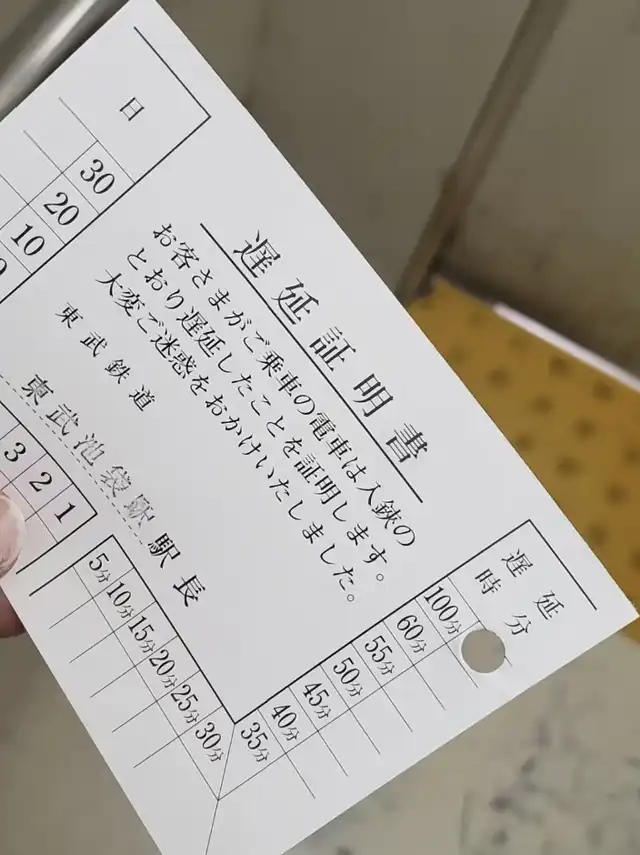 遅延証明書
お客さまがご乗車の電車は入鋏の
とおり遅延したことを証明します。
大変ご迷惑をおかけいたしました。
東武鉄道
東武池袋駅駅長
日
30
20
10
1
2
3
5分
10分
15分
20分
25分
30分
35分
40分
45分
50分
55分
60分
100分
遅延
時分